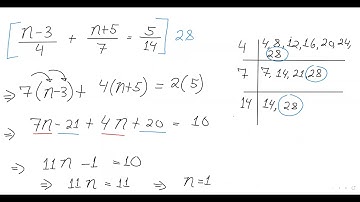 [ (n-3)/4 + (n+5)/7 = 5/14 ] 28
⇒ 7(n-3) + 4(n+5) = 2(5)
⇒ 7n - 21 + 4n + 20 = 10
⇒ 11n - 1 = 10
⇒ 11n = 11 ⇒ n=1
4 | 4, 8, 12, 16, 20, 24,
28
7 | 7, 14, 21, 28
14 | 14, 28